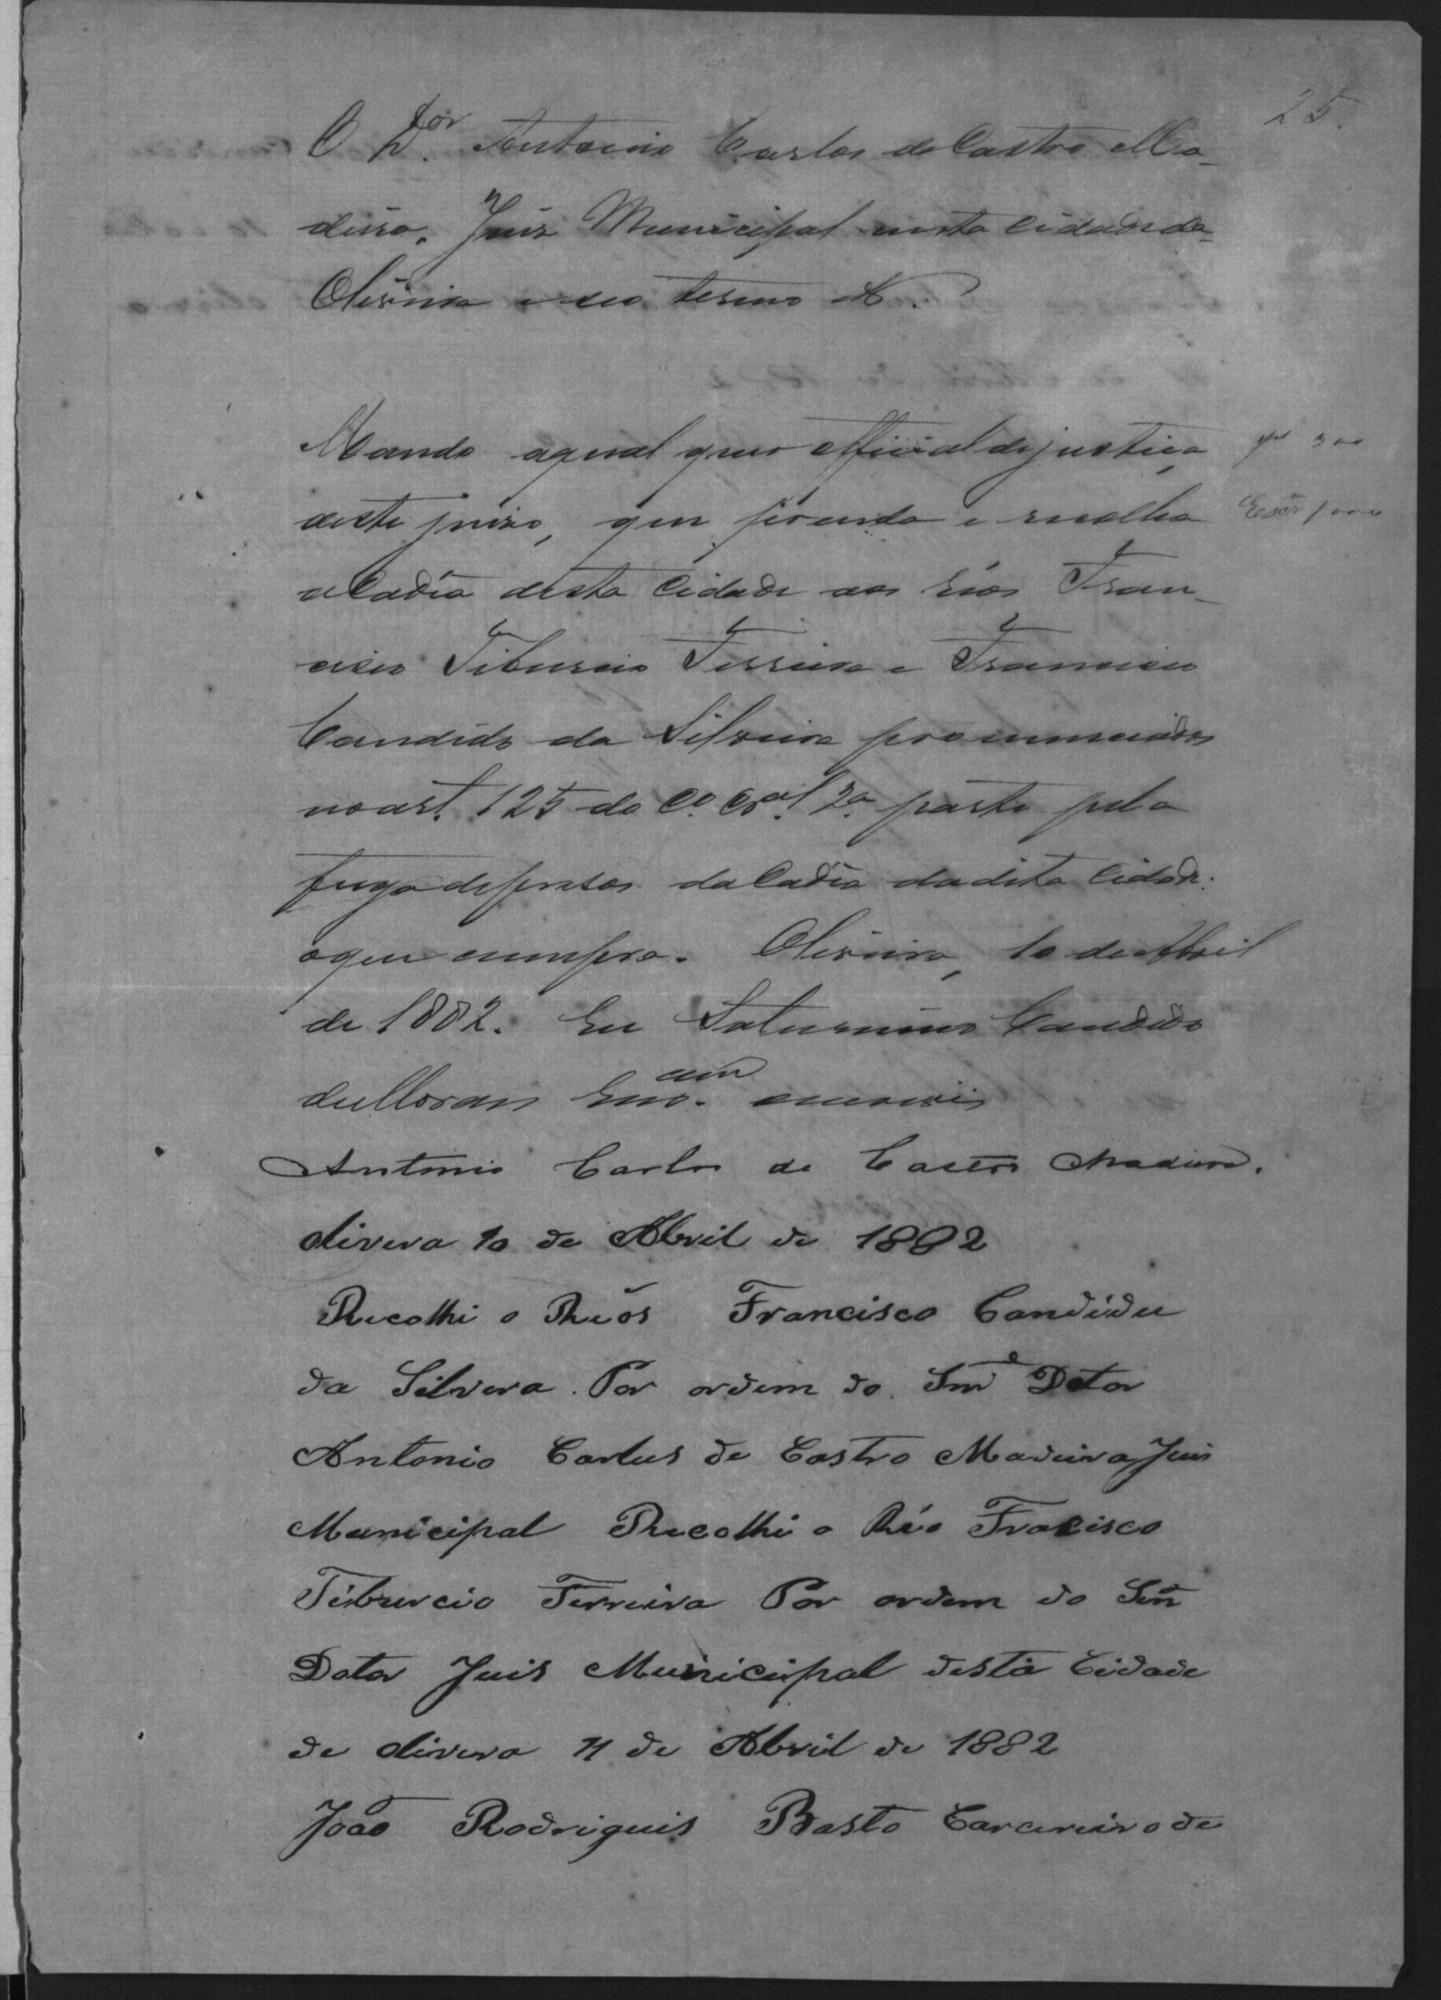 25.
O Dtor. Antonio Carlos de Castro Ma-
deira, Juiz Municipal nesta Cidade da
Oliveira e seo termo &.
Mando aqual quer official de justiça
deste juizo, que prenda e recolha
a Cadía desta Cidade aos réos Fran-
cisco Tiburcio Ferreira e Francisco
Candido da Silveira pronunciados
no art. 125 do Co. Cral. 2a. parte pela
fuga de presos da Cadía da dita Cidade.
o que cumpra. Oliveira, 10 de Abril
de 1882. Eu Saturnino Candido
de Moraes Escram. escrevi
Antonio Carlos de Castro Madeira.
Olivera 10 de Abril de 1882
Recolhi o Reós Francisco Candídu
da Silvera. Por ordem do Snr Dotor
Antonio Carlus de Castro Madeira Juis
Municipal Recolhi o Réo Fracisco
Tiburcio Ferreira Por ordem do Sñr
Dotor Juis Municipal desta Cidade
de Olivera 11 de Abril de 1882
João Rodriguis Basto Carcereiro de